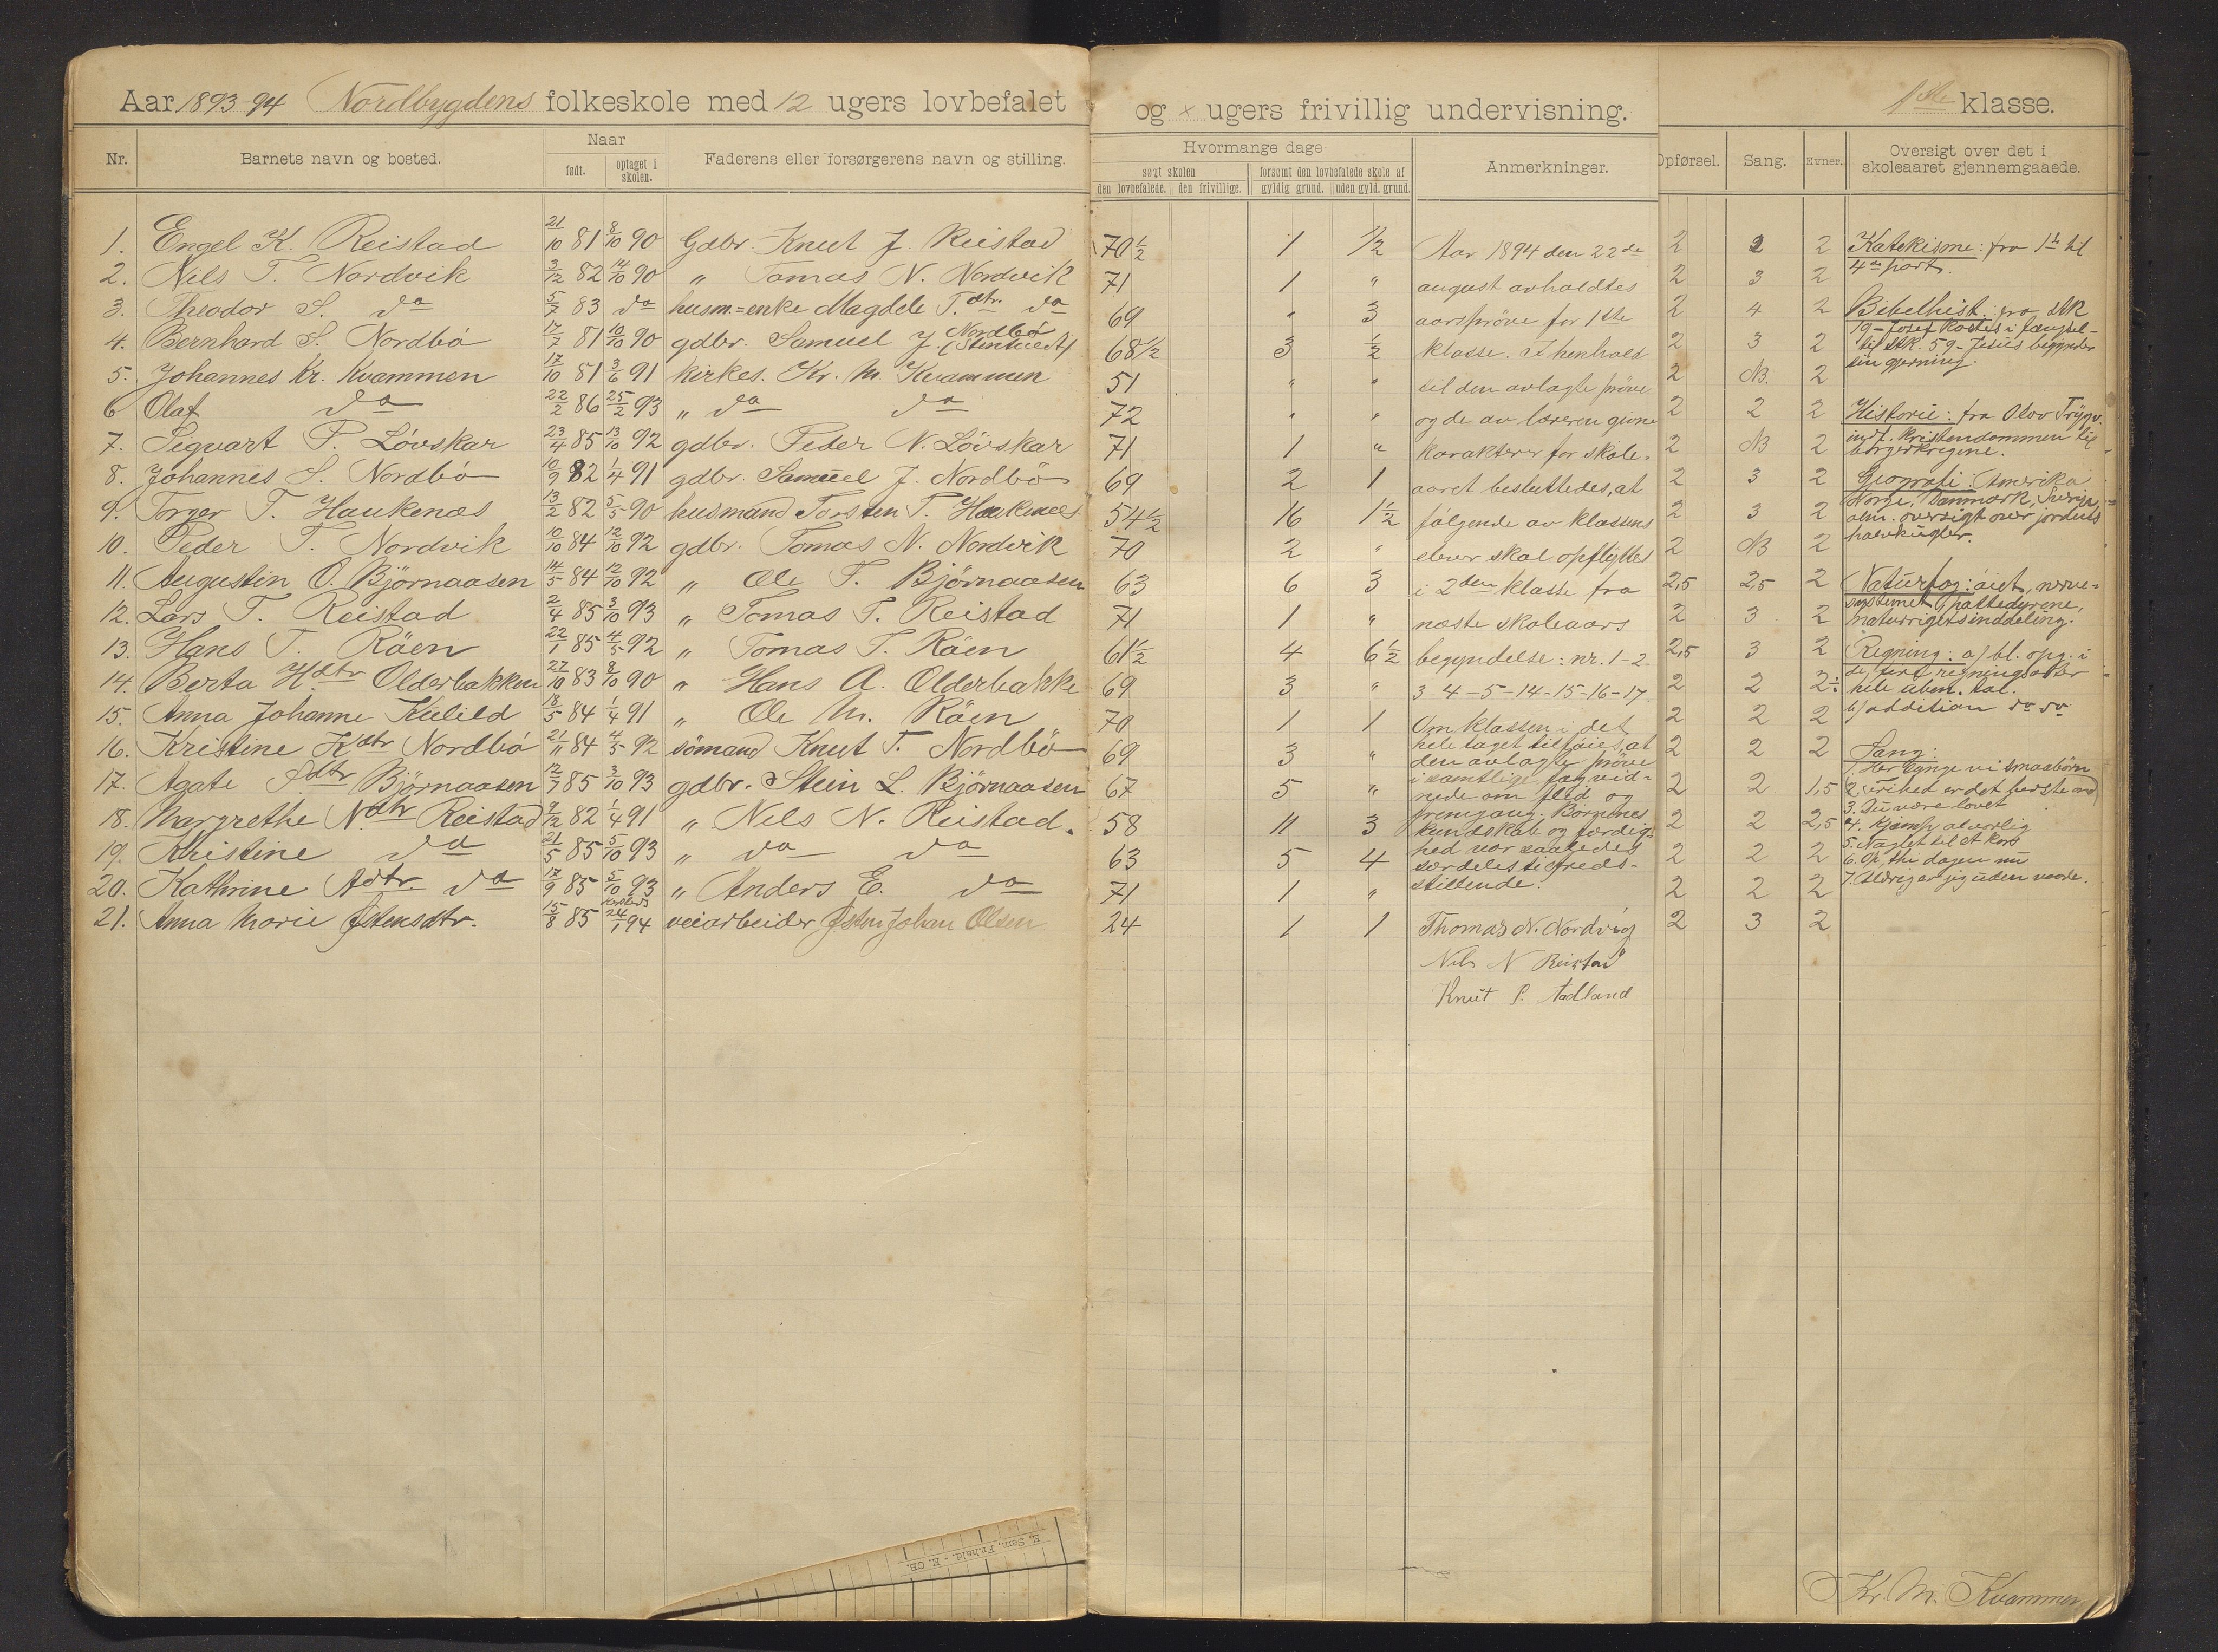 Aar 1893-94 Nordbygdens folkeskole med 12 ugers lovbefalet og × ugers frivillig undervisning. 1ste klasse.
Nr. Barnets navn og bosted. Naar født. optaget i skolen. Faderens eller forsørgerens navn og stilling.
1. Engel K. Reistad 21/10 81 8/10 90 Gdbr. Knut J. Reistad
2. Nils T. Nordvik 3/12 82 14/10 90 " Tomas N. Nordvik
3. Theodor S. do 5/7 83 do husm.=enke Magdele T.dtr. do
4. Bernhard S. Nordbø 17/7 81 10/10 90 gdbr. Samuel J. Nordbø
5. Johannes Kr. Kvammen 17/10 81 3/6 91 kirkes. Kr. M. Kvammen
6 Olaf do 22/2 86 25/2 93 " do do
7. Sigvart P. Løvskar 23/4 85 13/10 92 gdbr. Peder N. Løvskar
8. Johannes S. Nordbø 10/9 82 1/4 91 gdbr. Samuel J. Nordbø
9. Torger T. Haukenæs 13/2 82 5/5 90 husmand Torsten T. Haukenæs
10. Peder T. Nordvik 10/10 84 12/10 92 gdbr. Tomas N. Nordvik
11. Augustin O. Björnaasen 14/5 84 12/10 92 " Ole T. Björnaasen
12. Lars T. Reistad 2/4 85 3/10 93 " Tomas T. Reistad
13. Hans T. Röen 22/1 85 4/5 92 " Tomas T. Röen
14. Berta H.dtr Olderbakken 27/10 83 8/10 90 " Hans A. Olderbakke
15. Anna Johanne Kulild 18/5 84 1/4 91 " Ole M. Röen
16. Kristine K.dtr Nordbø 21/11 84 4/5 92 sömand Knut T. Nordbö
17. Agate S.dtr Björnaasen 12/7 85 3/10 93 gdbr. Stein L. Björnaasen
18. Margrethe N.dtr Reistad 9/12 82 1/4 91 " Nils N. Reistad.
19. Kristine do 21/5 85 5/10 93 " do do
20. Kathrine A.dtr. do 17/9 85 5/10 93 " Anders E. do
21. Anna Marie Østensdtr. 15/8 85 24/1 94 veiarbeider Østen Johan Olsen
E. Sem, Fr.hald. - E. CB.
Hvormange dage
søgt skolen
den lovbefalede. den frivillige.
forsømt den lovbefalede skole af
gyldig grund. uden gyld. grund.
70 1/2 1 1/2
71 1 "
69 " 3
68 1/2 3 1/2
51 " "
72 " "
71 1 "
69 2 1
54 1/2 16 1 1/2
70 2 "
63 6 3
71 1 "
61 1/2 4 6 1/2
69 3 "
70 1 1
69 3 "
67 5 "
58 11 3
63 5 4
71 1 "
24 1 1
Anmerkninger.
Aar 1894 den 22de
august avholdtes
aarsprøve for 1ste
klasse. I henhold
til den avlagte prøve
og de av læreren givne
karakterer for skole-
aaret besluttedes, at
følgende av klassens
elever skal opflyttes
i 2den klasse fra
næste skoleaars
begyndelse: nr. 1-2-
3-4-5-14-15-16-17.
Om klassen i det
hele taget tilføies, at
den avlagte prøve
i samtlige fag vid-
nede om flid og
fremgang. Børnenes
kundskab og færdig-
hed var saaledes
særdeles tilfreds-
stillende.
Thomas N. Nordvig
Nils N Reistad
Knut S. Aadland
Opførsel. Sang. Evner.
2 2 2
2 3 2
2 4 2
2 3 2
2 NB. 2
2 2 2
2 NB 2
2 3 2
2 3 2
2 NB 2
2,5 2,5 2
2 3 2
2,5 3 2
2 2 2÷
2 2 2
2 2 2
2 2 1,5
2 2 2,5
2 2 2
2 2 2
2 3 2
Oversigt over det i skoleaaret gjennemgaaede.
Katekisme: fra 1ste til
4de part.
Bibelhist.: fra stk
19 - Josef kastes i fængsel -
til stk. 59 - Jesus begynder
sin gjerning.
Historie: fra Olav Trygv.
indf. kristendommen til
borgerkrigene.
Geografi: Amerika
Norge, Danmark, Sverige,
alm. oversigt over jordens
halvkugler.
Naturfag: øiet, nerve-
systemet, pattedyrene,
naturrigets inddeling.
Regning: a) bl. opg. i
de fire regningsarter
hele uben. tal.
b) addition do do
Sang:
1. Her synge vi smaabørn
2. Frihed er det bedste
3. Du være lovet
4. Kjæmp alvorlig
5. Naglet til et kors
6. Op, thi dagen nu
7. Aldrig er jeg uden vaade.
Kr. M. Kvammen